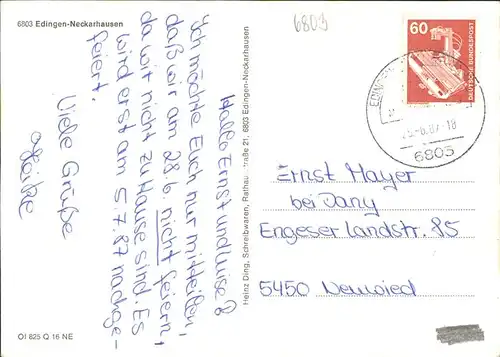 6803 Edingen-Neckarhausen
6803
60
DEUTSCHE BUNDESPOST
6803
Hallo Ernst und Luise!
Ich möchte Euch nur mitteilen,
daß wir am 28.6. nicht feiern,
da wir nicht zu Hause sind. Es
wird erst am 5.7.87 nachge-
feiert.
Viele Grüße
Heinz Ding, Schreibwaren, Rathausstraße 21, 6803 Edingen-Neckarhausen
Ernst Mayer
bei Dany
Engeser Landstr. 85
5450 Neuwied
OI 825 Q 16 NE